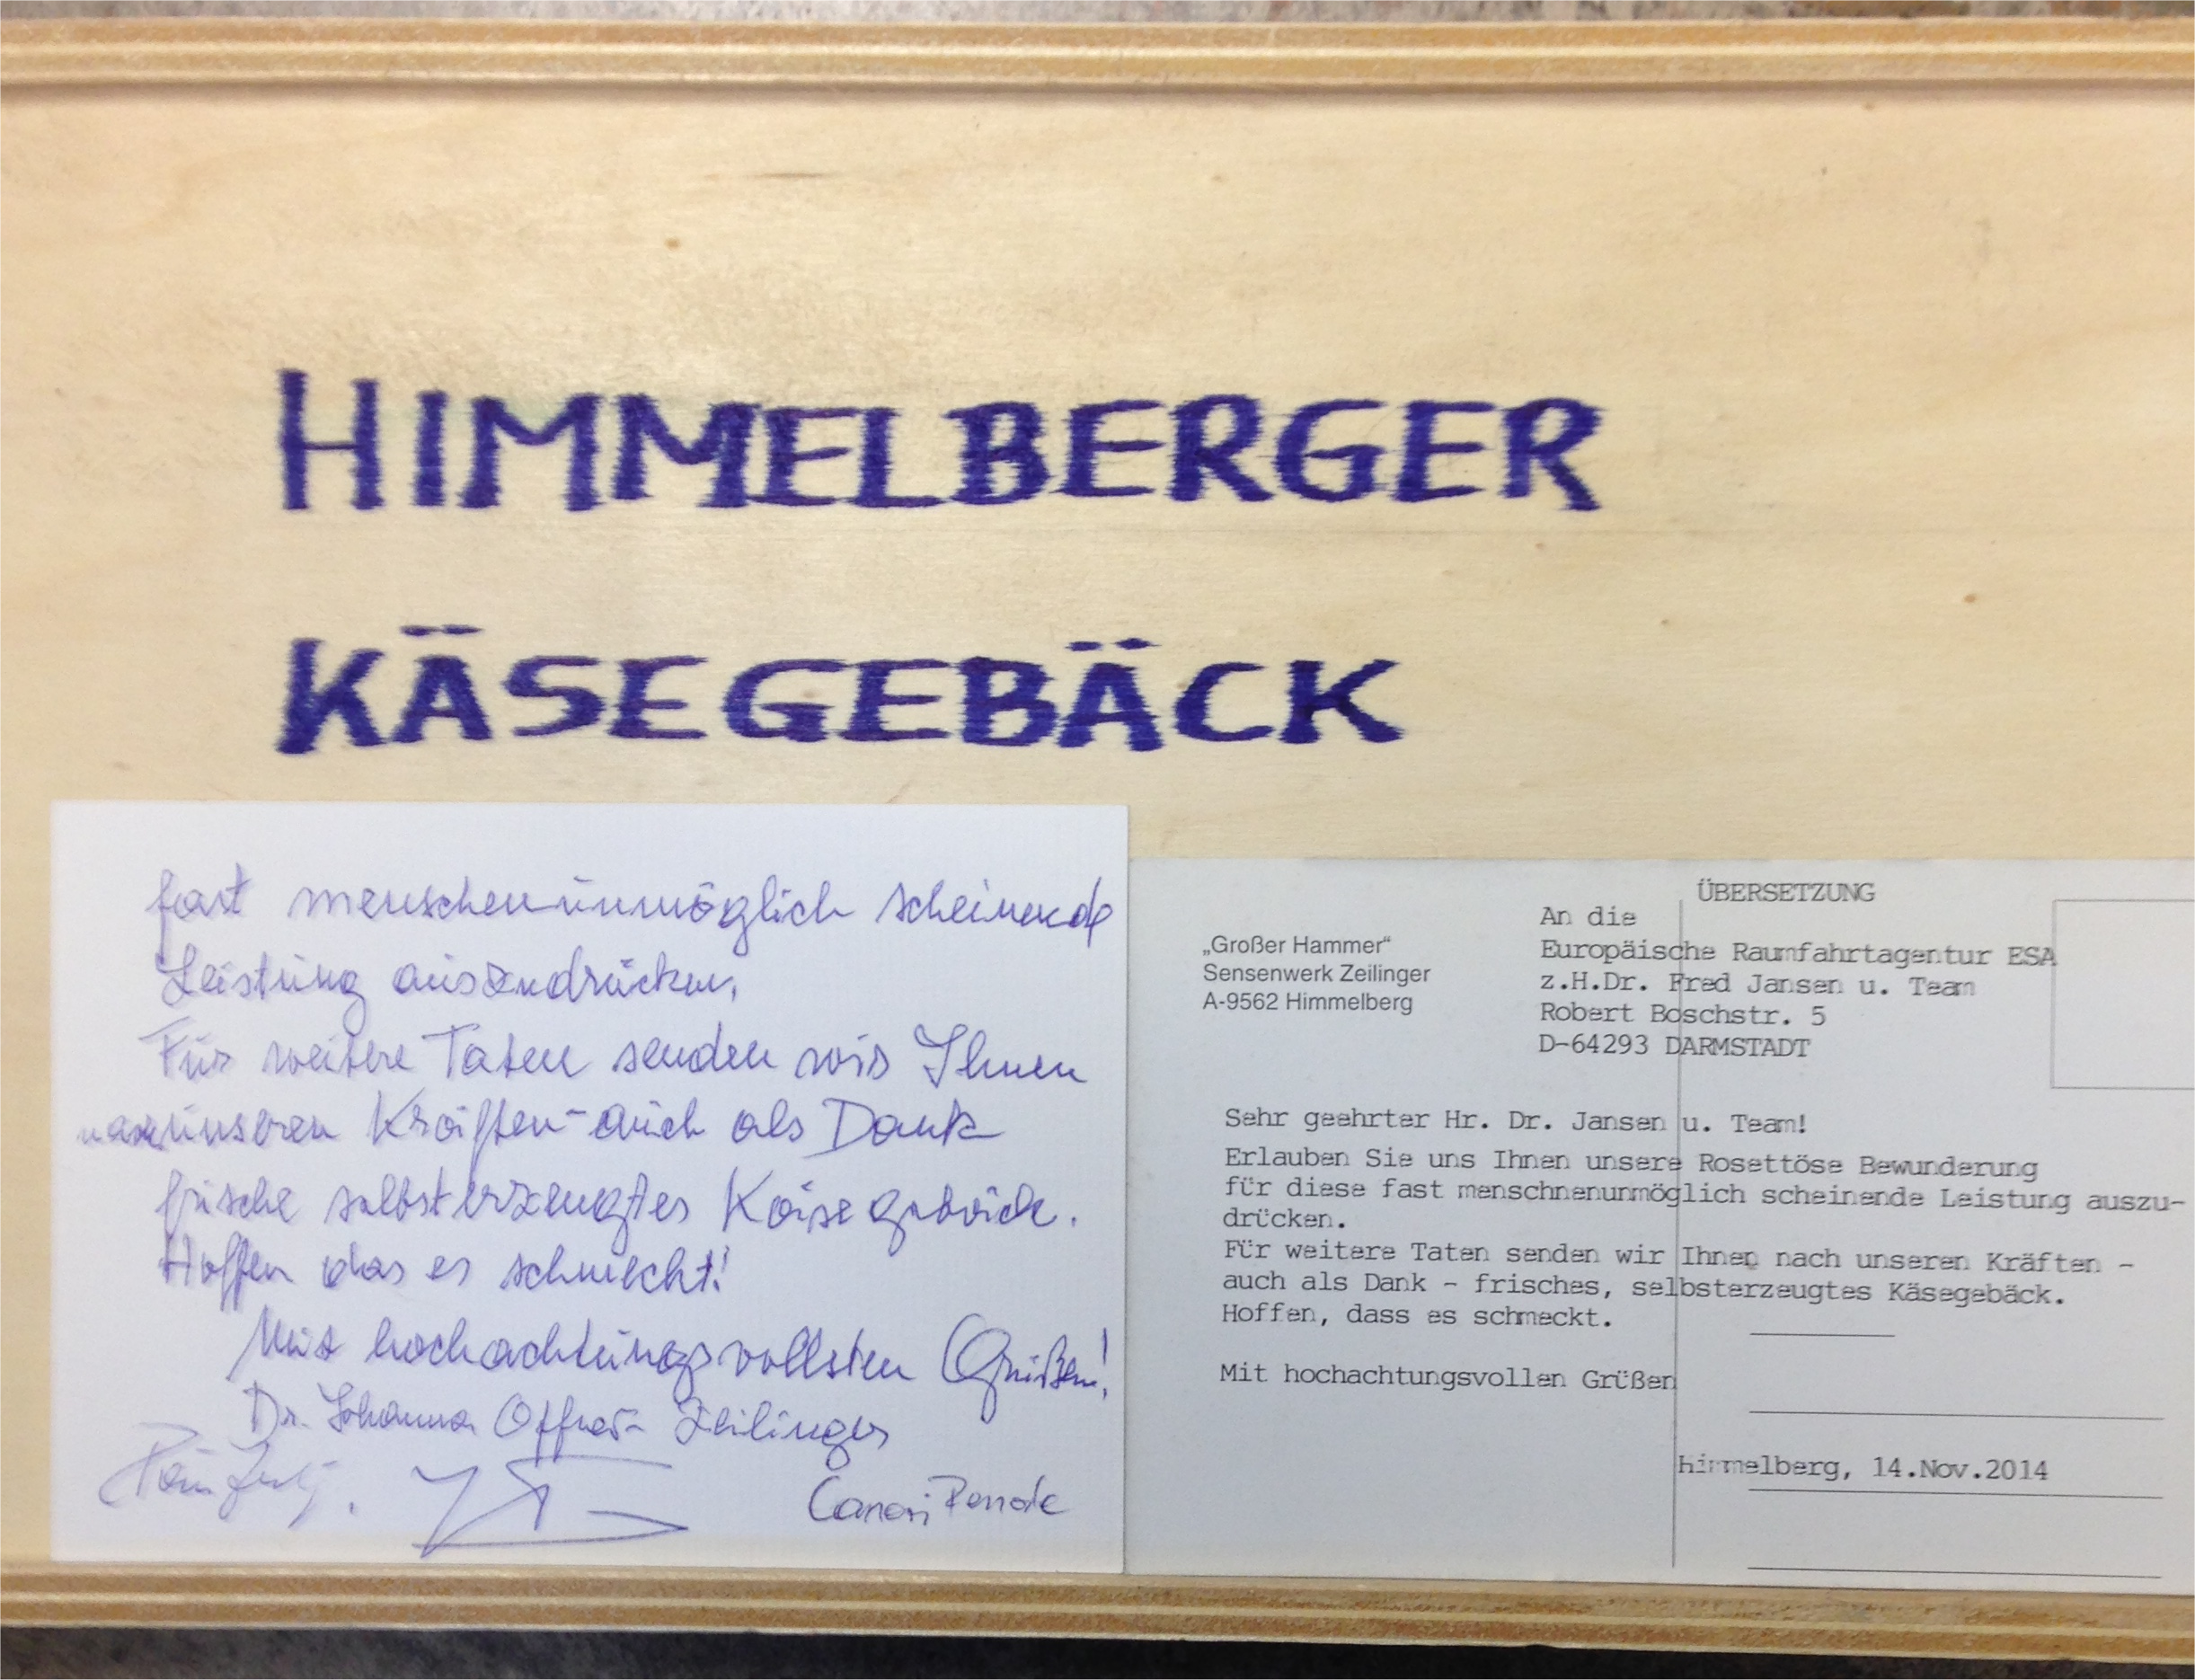 HIMMELBERGER
KÄSEGEBÄCK
fast menschenunmöglich scheinende
Leistung auszudrücken.
Für weitere Taten senden wir Ihnen
nach unseren Kräften - auch als Dank
frische selbsterzeugtes Käsegebäck.
Hoffen das es schmeckt!
Mit hochachtungsvollsten Grüßen!
Dr. Johanna Offner-Zeilinger
ÜBERSETZUNG
„Großer Hammer“
Sensenwerk Zeilinger
A-9562 Himmelberg
An die
Europäische Raumfahrtagentur ESA
z.H.Dr. Fred Jansen u. Team
Robert Boschstr. 5
D-64293 DARMSTADT
Sehr geehrter Hr. Dr. Jansen u. Team!
Erlauben Sie uns Ihnen unsere Rosettöse Bewunderung
für diese fast menschnenunmöglich scheinende Leistung auszu-
drücken.
Für weitere Taten senden wir Ihnen nach unseren Kräften -
auch als Dank - frisches, selbsterzeugtes Käsegebäck.
Hoffen, dass es schmeckt.
Mit hochachtungsvollen Grüßen
Himmelberg, 14.Nov.2014